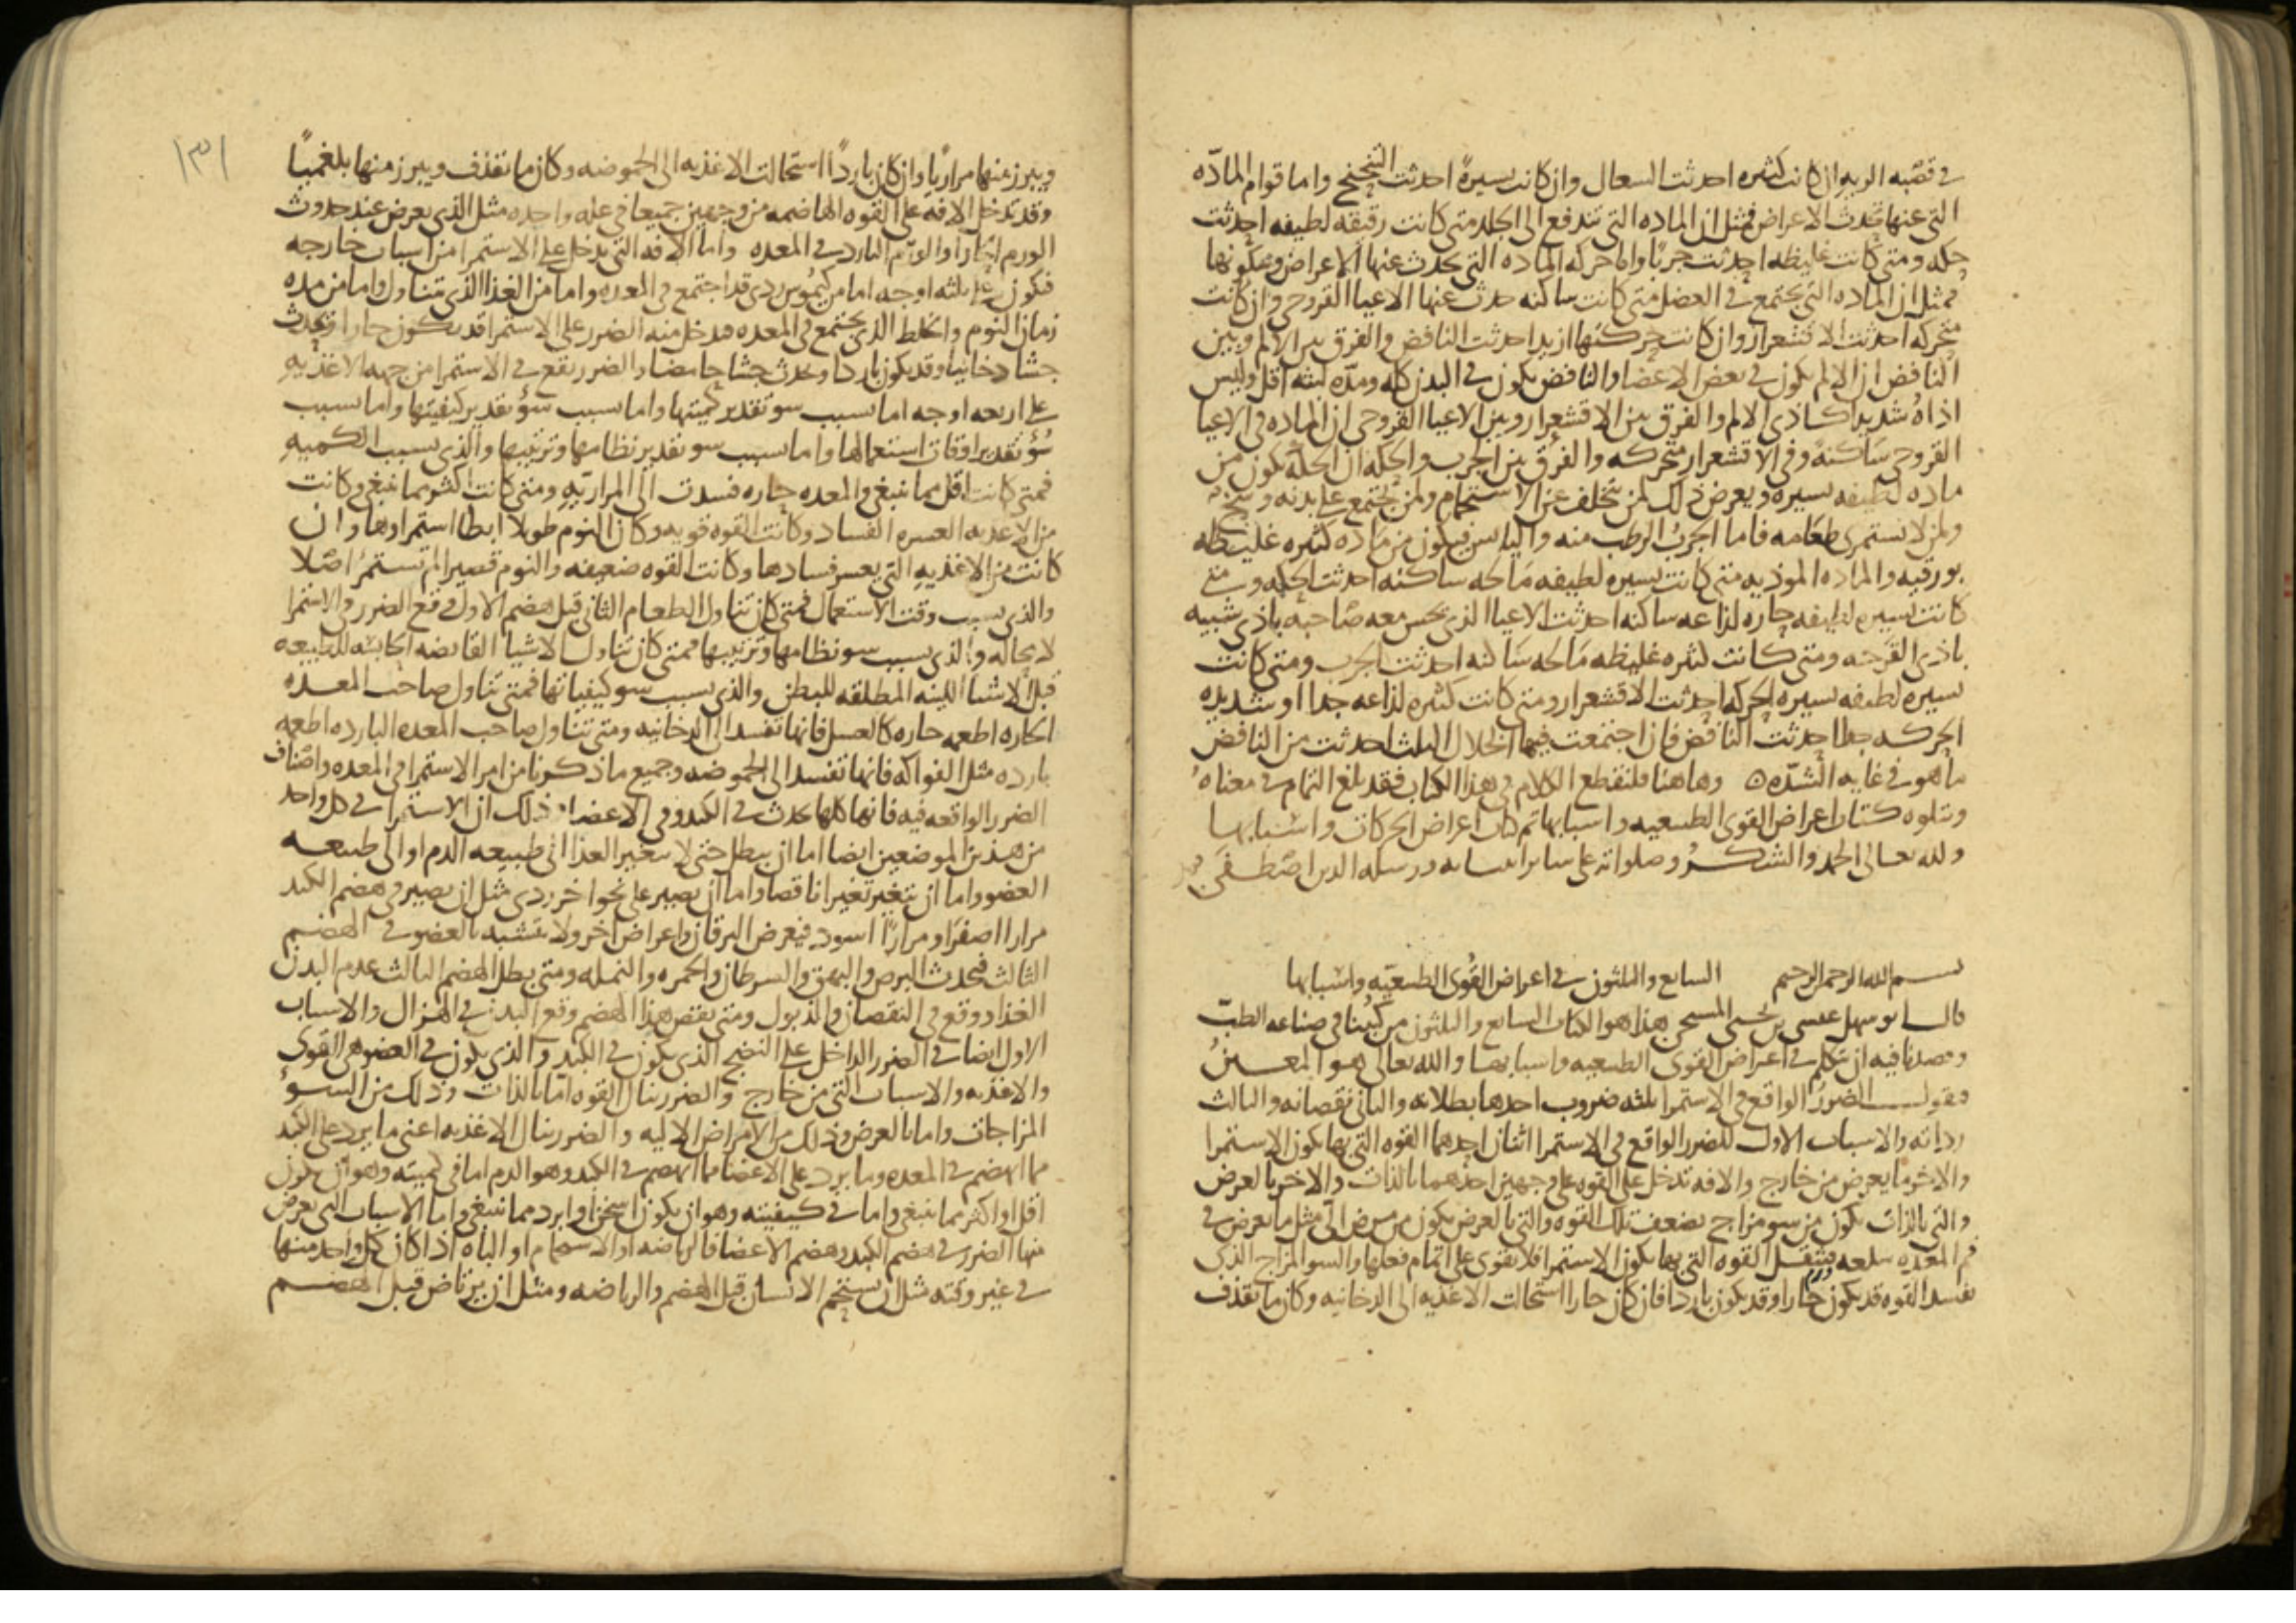 في قصبه الريه ان كانت كثيره احدثت السعال وان كانت يسيرةً احدثت التنحنح واما قوام المادّه
التي عنها تحدث الاعراض فمثل ان الماده التي تندفع الى الجلد متى كانت رقيقه لطيفه احدثت
حكه ومتى كانت غليظه احدثت جربًا واما حركه الماده التي تحدث عنها الاعراض وسكونها
فمثل ان الماده التي تجتمع في العضل متى كانت ساكنه حدث عنها الاعيا القروحي وان كانت
متحركه احدثت الاقشعرار وان كانت حركتها ازيد احدثت النافض والفرق بين الالم وبين
النافض ان الالم يكون في بعض الاعضا والنافض يكون في البدن كله ومدّه لبثه اقل وليس
اذاهُ شديدا كاذى الالم والفرق بين الاقشعرار وبين الاعيا القروحي ان الماده في الاعيا
القروحي ساكنةً وفي الاقشعرار متحركه والفرق بين الجرب والحكه ان الحكّه تكون من
ماده لطيفه يسيره ويعرض ذلك لمن يتخلف عن الاستحمام ولمن يجتمع على بدنه وسخ
ولمن لا يستمري طعامه فاما الجربُ الرطب منه واليابس فيكون من ماده كثيره غليظه
بورقيه والماده الموذيه متى كانت يسيره لطيفه مالحه ساكنه احدثت الحكه ومتى
كانت يسيره لطيفه حاره لذاعه ساكنه احدثت الاعيا الذي يحس معه صاحبه باذى شبيه
باذى القرحه ومتى كانت كثيره غليظه مالحه ساكنه احدثت الجرب ومتى كانت
يسيره لطيفه يسيره الحركه احدثت الاقشعرار ومتى كانت كثيره لذاعه جدا او شديده
الحركه جدا احدثت النافض فان اجتمعت فيها الخلال الثلث احدثت من النافض
ما هو في غايه الشدّه ۞ وهاهنا فلنقطع الكلام في هذا الكتاب فقد بلغ التمام في معناهُ
ويتلوه كتاب اعراض القوى الطبيعيه واسبابها تم كتاب اعراض الحركات واسبابها
ولله تعالى الحمد والشكرُ وصلواته على ساير انبيايه ورسله الذين اصطفى
بسم الله الرحمن الرحيم السابع والثلثون في اعراض القُوى الطبيعيّه واسبابها
قال ابو سهل عيسى بن يحيى المسيحي هذا هو الكتاب السابع والثلثون من كتبنا في صناعه الطبّ
وقصدنا فيه ان نتكلم في اعراض القوى الطبيعيه واسبابها والله تعالى هو المعينُ
فنقول الضررُ الواقع في الاستمرا بثلثه ضروب احدها بطلانه والثاني نقصانه والثالث
رداته والاسباب الاول للضرر الواقع في الاستمرا اثنان احدهما القوه التي بها يكون الاستمرا
والاخر ما يعرض من خارج والافه تدخل على القوه على وجهين احدهما بالذات والاخر بالعرض
والتي بالذات يكون من سو مزاج يضعف تلك القوه والتي بالعرض يكون من مرض الّي مثل ما يعرض في
فم المعده سلعه فيثقل القوه التي بها يكون الاستمرا فلا تقوى على اتمام فعلها والسو المزاج الذي
يفسد القوه قد يكون حارا وقد يكون باردا فان كان حارا استحالت الاغذيه الى الدخانيه وكان ما تقذف
١٣١
ويبرز منها مراريًا وان كان باردًا استحالت الاغذيه الى الحموضه وكان ما تقذف ويبرز منها بلغميًا
وقد تدخل الافه على القوه الهاضمه من وجهين جميعا في عله واحده مثل الذي يعرض عند حدوث
الورم الحار او الورم البارد في المعده واما الافه التي تدخل على الاستمرا من اسباب خارجه
فتكون على ثلثه اوجه اما من كيموس ردي قد اجتمع في المعده واما من الغذا الذي تتناول واما من مده
زمان النوم والخلط الذي يجتمع في المعده فتدخل منه الضرر على الاستمرا قد يكون حارا وتحدث
جشا دخانيا وقد يكون باردا ويحدث جشا حامضا والضرر يقع في الاستمرا من جهه الاغذيه
على اربعه اوجه اما بسبب سو تقدير كميتها واما بسبب سؤ تقدير كيفيتها واما بسبب
سُؤ تقدير اوقات استعمالها واما بسبب سو تقدير نظامها وترتيبها والذي بسبب الكميه
فمتى كانت اقل مما ينبغي والمعده حاره فسدت الى المراريّه ومتى كانت اكثر مما ينبغي وكانت
من الاغذيه العسره الفساد وكانت القوه قويه وكان النوم طويلا ابطا استمراوها وان
كانت من الاغذيه التي يعسر فسادها وكانت القوه ضعيفه والنوم قصيرا لم تستمرُ اصلا
والذي بسبب وقت الاستعمال فمتى كان تناول الطعام الثاني قبل هضم الاول وقع الضرر في الاستمرا
لا محاله والذي بسبب سو نظامها وترتيبها فمتى كان تناول الاشيا القابضه الحابسه للطبيعه
قبل الاشيا اللينه المطلقه للبطن والذي بسبب سو كيفياتها فمتى تناول صاحب المعده
الحاره اطعمه حاره كالعسل فانها تفسد الى الدخانيه ومتى تناول صاحب المعده البارده اطعمه
بارده مثل الفواكه فانها تفسد الى الحموضه وجميع ما ذكرنا من امر الاستمرا في المعده واصناف
الضرر الواقعه فيه فانها كلها تحدث في الكبد وفي الاعضا وذلك ان الاستمرا في كل واحد
من هذين الموضعين ايضا اما ان يبطل حتى لا يتغير الغذا الى طبيعه الدم او الى طبيعه
العضو واما ان يتغير تغيرا ناقصا واما ان يصير على نحو اخر ردي مثل ان يصير في هضم الكبد
مرارا اصفر او مرارًا اسود فيعرض اليرقان واعراض اخر ولا يتشبه بالعضو في الهضم
الثالث فيحدث البرص والبهق والسرطان والحمره والنمله ومتى يطل الهضم الثالث عدم البدن
الغذا ووقع في النقصان والذبول ومتى نقص هذا الهضم وقع البدن في الهزال والاسباب
الاول ايضا في الضرر الداخل على النضج الذي يكون في الكبد والذي يكون في العضو هي القوى
والاغذيه والاسباب التي من خارج والضرر ينال القوه امّا بالذات وذلك من السوءُ
المزاجات واما بالعرض وذلك من الامراض الاليه والضرر ينال الاغذيه اعني ما يرد على الكبد
مما انهضم في المعده وما يرد على الاعضا مما انهضم في الكبد وهو الدم اما في كميته وهو ان يكون
اقل او اكثر مما ينبغي واما في كيفيته وهو ان يكون اسخن او ابرد مما ينبغي واما الاسباب التي يعرض
منها الضرر في هضم الكبد وهضم الاعضا فالرياضه او الاستحمام او الباه اذا كان كل واحد منها
في غير وقته مثل ان يستحم الانسان قبل الهضم والرياضه ومثل ان يرتاض قبل الهضم